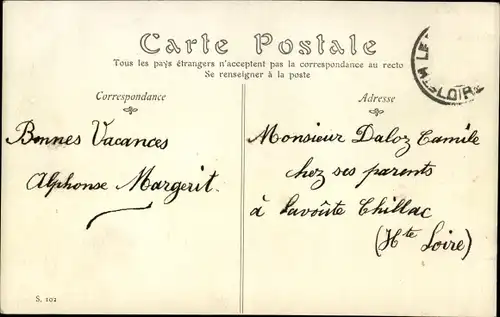 Carte Postale
Tous les pays étrangers n'acceptent pas la correspondance au recto
Se renseigner à la poste
Correspondance
Adresse
Bonnes Vacances
Alphonse Margerit.
Monsieur Daloz Camile
chez ses parents
à Lavoûte Chillac
(Hte Loire)
LE
LOIRE
S. 102